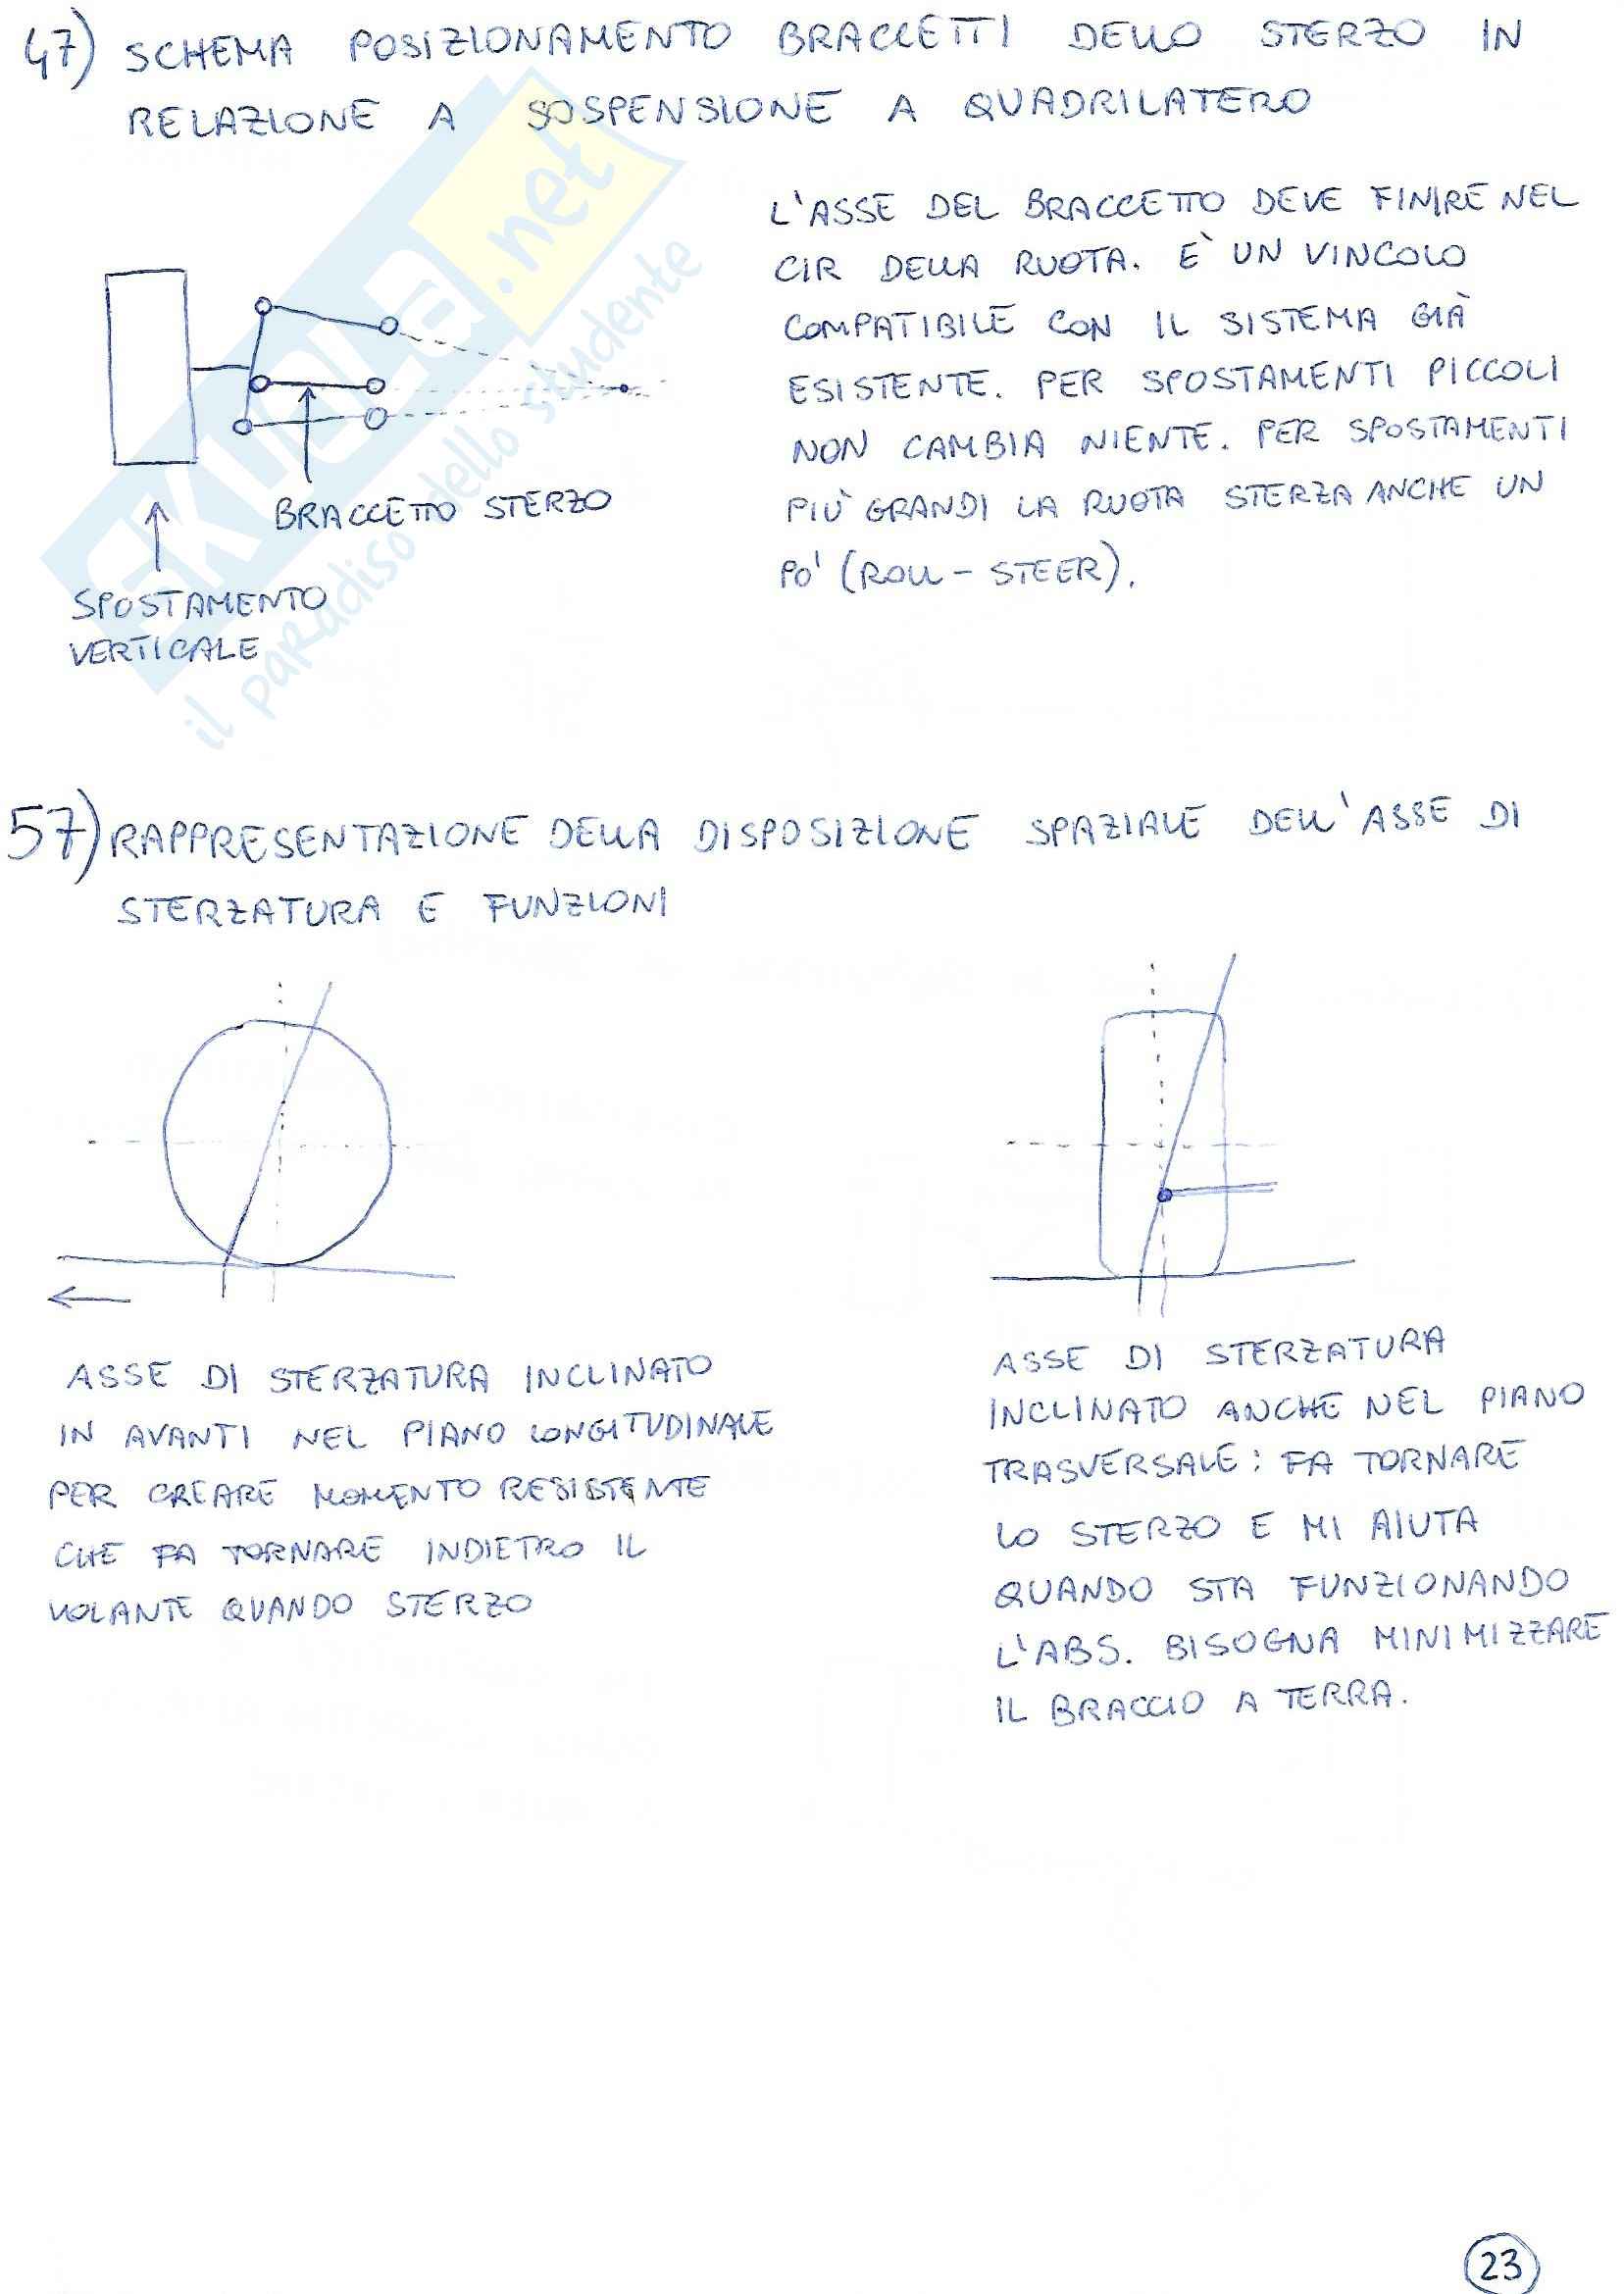 47) SCHEMA POSIZIONAMENTO BRACCETTI DELLO STERZO IN
RELAZIONE A SOSPENSIONE A QUADRILATERO
L'ASSE DEL BRACCETTO DEVE FINIRE NEL
CIR DELLA RUOTA. È UN VINCOLO
COMPATIBILE CON IL SISTEMA GIÀ
ESISTENTE. PER SPOSTAMENTI PICCOLI
NON CAMBIA NIENTE. PER SPOSTAMENTI
PIÙ GRANDI LA RUOTA STERZA ANCHE UN
PO' (ROLL-STEER).
BRACCETTO STERZO
SPOSTAMENTO
VERTICALE
SKUOLA.net
il paradiso dello studente
57) RAPPRESENTAZIONE DELLA DISPOSIZIONE SPAZIALE DELL'ASSE DI
STERZATURA E FUNZIONI
ASSE DI STERZATURA INCLINATO
IN AVANTI NEL PIANO LONGITUDINALE
PER CREARE MOMENTO RESISTENTE
CHE FA TORNARE INDIETRO IL
VOLANTE QUANDO STERZO
ASSE DI STERZATURA
INCLINATO ANCHE NEL PIANO
TRASVERSALE: FA TORNARE
LO STERZO E MI AIUTA
QUANDO STA FUNZIONANDO
L'ABS. BISOGNA MINIMIZZARE
IL BRACCIO A TERRA.
23